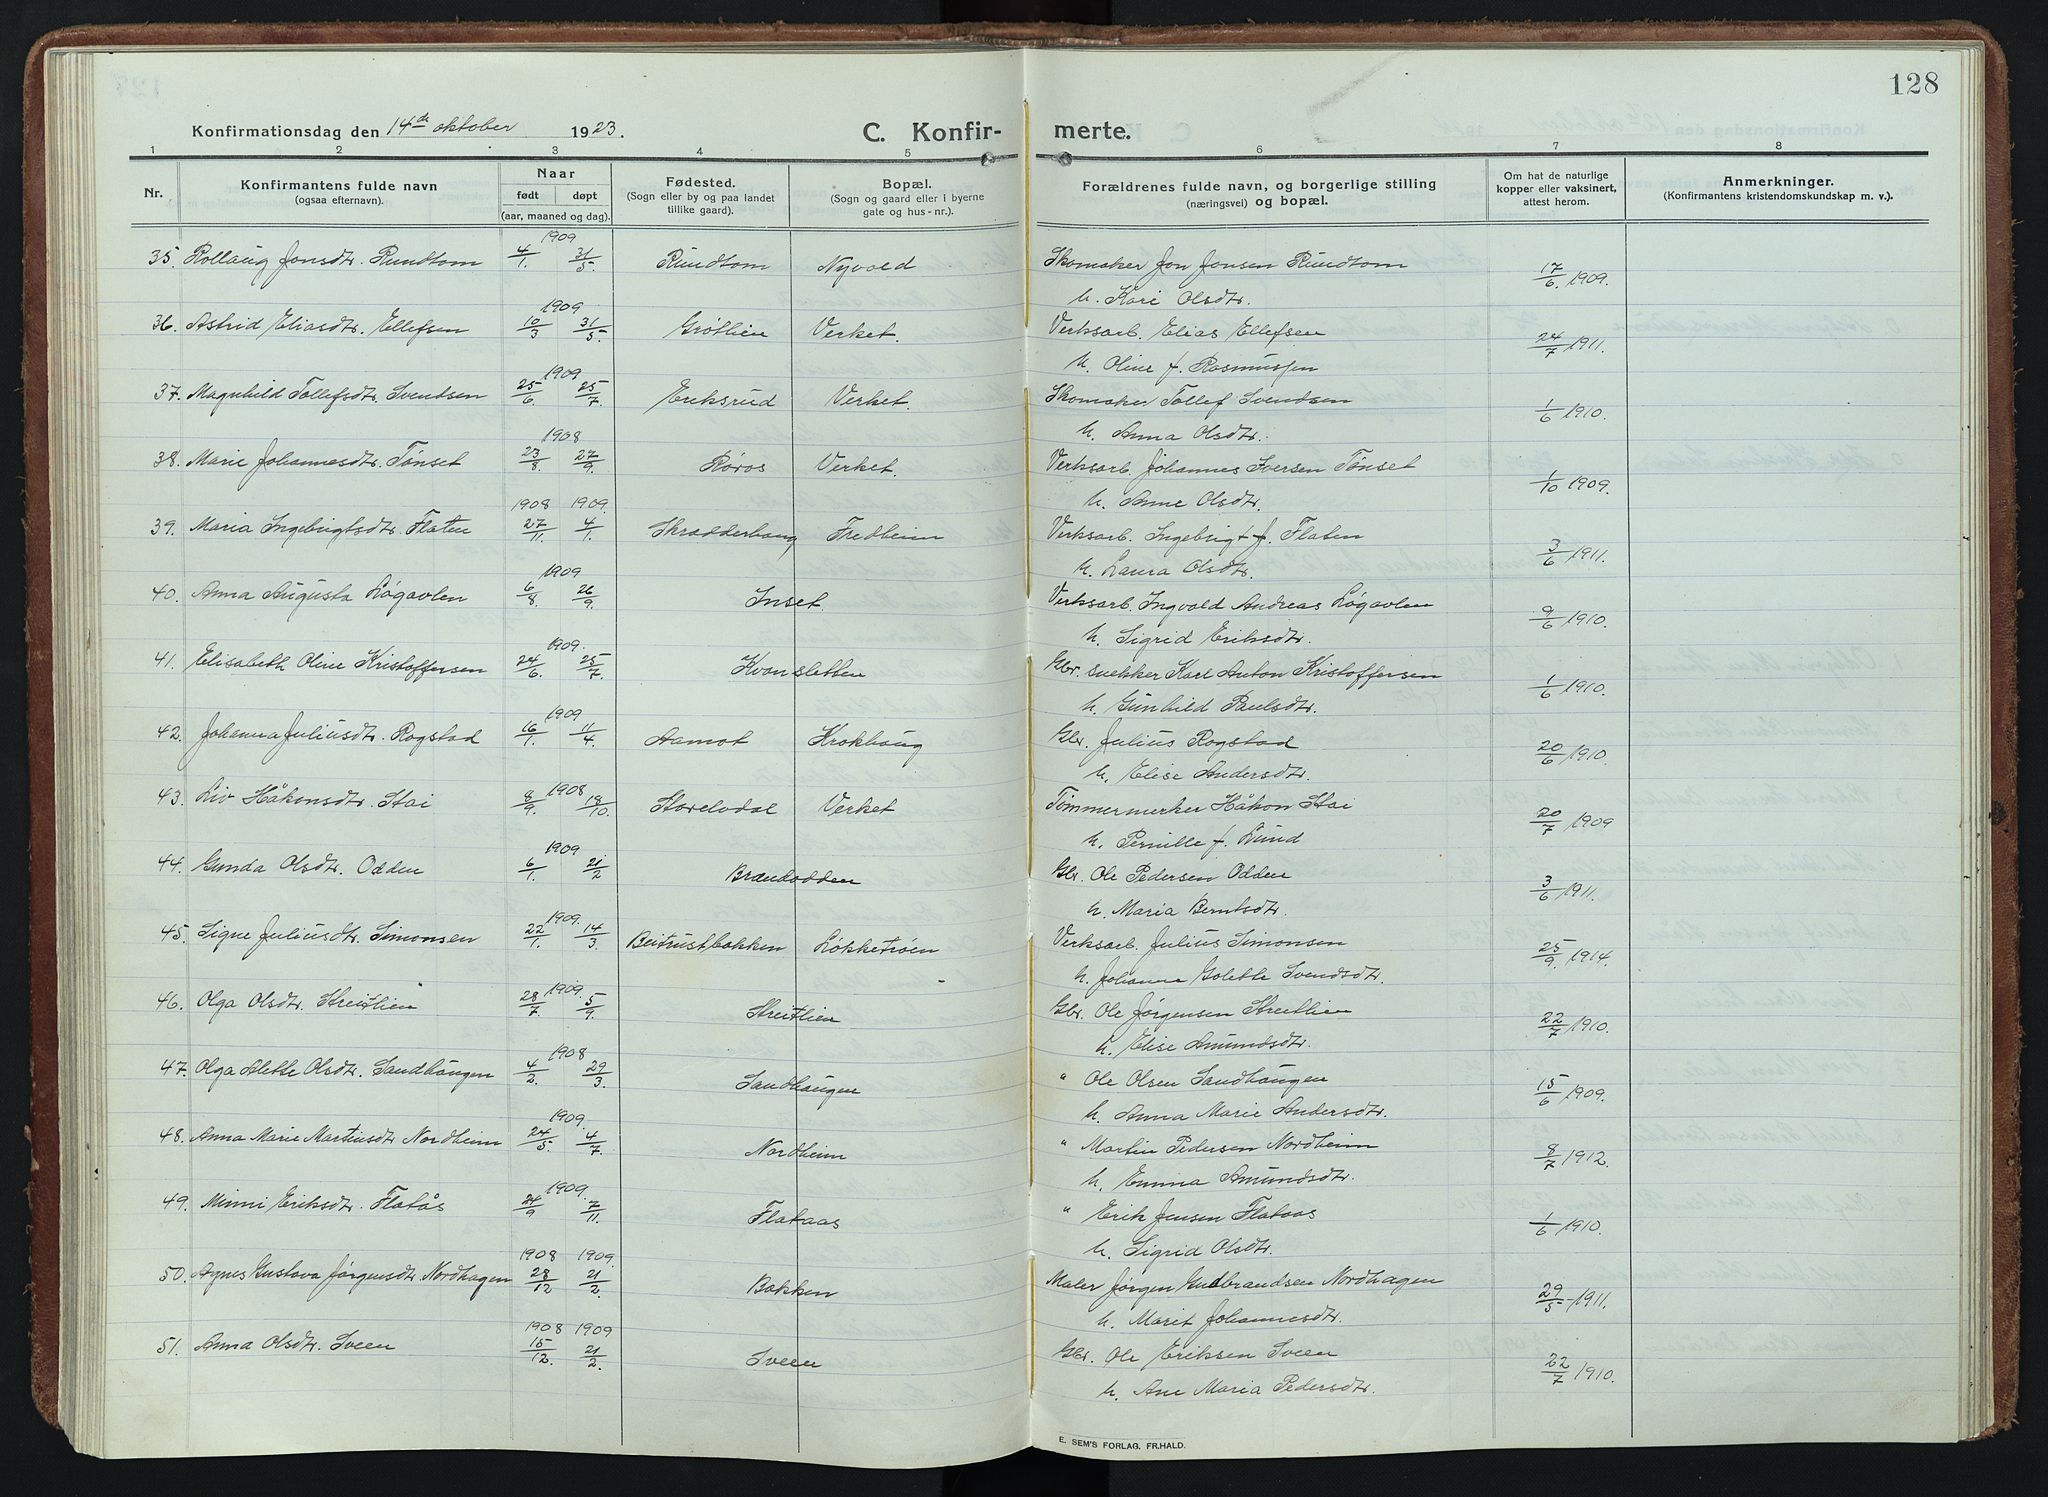 128
Konfirmationsdag den 14de oktober 1923.
C. Konfirmerte.
1 2 3 4 5 6 7 8
Nr. Konfirmantens fulde navn (ogsaa efternavn). Naar født døpt (aar, maaned og dag). Fødested. (Sogn eller by og paa landet tillike gaard). Bopæl. (Sogn og gaard eller i byerne gate og hus-nr.). Forældrenes fulde navn, og borgerlige stilling (næringsvei) og bopæl. Om hat de naturlige kopper eller vaksinert, attest herom. Anmerkninger. (Konfirmantens kristendomskundskap m. v.).
1909
35. Rollaug Jonsdtr. Rundtom 4/1. 31/5. Rundtom Nyvold Skomaker Jon Jonsen Rundtom 17/6. 1909.
h. Kari Olsdtr.
1909
36. Astrid Eliasdtr. Ellefsen 10/3 31/5. Grøtlien Verket. Verksarb. Elias Ellefsen 24/7 1911.
h. Oline f. Rasmussen
1909
37. Magnhild Tollefsdtr. Svendsen 25/6. 25/7. Eriksrud Verket. Skomaker Tollef Svendsen 1/6 1910.
h. Anna Olsdtr.
1908
38. Marie Johannesdtr. Tønset 23/8. 27/9. Røros Verket. Verksarb. Johannes Iversen Tønset 1/10 1909.
h. Anne Olsdtr.
1908 1909.
39. Maria Ingebrigtsdtr. Flaten 27/11. 4/1. Skradderhaug Fredheim Verksarb. Ingebrigt J. Flaten 3/6 1911.
h. Laura Olsdtr.
1909
40. Anna Augusta Løgavlen 6/8. 26/9. Inset Verksarb. Ingvald Andreas Løgavlen 9/6 1910.
h. Sigrid Eriksdtr.
1909.
41. Elisabeth Oline Kristoffersen 24/6. 25/7. Kvansletten Gbr. snekker Karl Anton Kristoffersen 1/6 1910.
h. Gunhild Paulsdtr.
1909
42. Johanna Juliusdtr. Rogstad 16/1. 11/4. Aamot Krokhaug Gbr. Julius Rogstad 20/6 1910.
h. Elise Andersdtr.
1908
43. Liv Håkonsdtr. Stai 8/9. 18/10. Storelvdal Verket Tømmermerker Håkon Stai 20/7 1909
h. Pernille f. Lund
1909
44. Gunda Olsdtr. Odden 6/1. 21/2 Brandodden Gbr. Ole Pedersen Odden 3/6 1911.
h. Maria Berntsdtr.
1909.
45. Signe Juliusdtr. Simonsen 22/1. 14/3. Beitrustbakken Løkketrøen Verksarb. Julius Simonsen 25/9. 1914.
h. Johanne Golette Svendsdtr.
1909.
46. Olga Olsdtr. Streitlien 28/7. 5/9. Streitlien Gbr. Ole Jørgensen Streitlien 22/7 1910.
h. Elise Amundsdtr.
1908
47. Olga Alette Olsdtr. Sandhaugen 4/2. 29/3. Sandhaugen " Ole Olsen Sandhaugen 15/6 1909.
h. Anna Marie Andersdtr.
1909.
48. Anna Marie Martinsdtr Nordheim 24/5. 4/7. Nordheim " Martin Pedersen Nordheim 8/7 1912.
h. Emma Amundsdtr.
1909
49. Minni Eriksdtr. Flatås 24/9 7/11. Flataas " Erik Jensen Flataas 1/6 1910.
h. Sigrid Olsdtr.
1908 1909.
50. Agnes Gustava Jørgensdtr. Nordhagen 28/12 21/2. Bakken Maler Jørgen Gudbrandsen Nordhagen 29/5-1911.
h. Marit Johannesdtr.
1908 1909
51. Anna Olsdtr. Sveen 15/12. 21/2. Sveen Gbr. Ole Eriksen Sveen 22/7 1910.
h. Ane Maria Pedersdtr.
E. SEM'S FORLAG, FR.HALD.